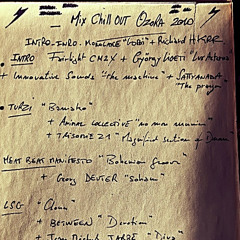 Mix Chill OUT OZORA 2010
INTRO-INDO. MODULACE "GOBI" + Richard H. KIRK
• INTRO Fairlight CMZX + György LIGETI Lux Aeterna
+ Innovative Sounds "the machine" + SATYANANDA
The prayer
• TURZI "Bamako"
+ ANIMAL COLLECTIVE "no more runnin"
+ TRISOMIE 21 " Magnified section of Dreams
MEAT BEAT MANIFESTO "Bohemian Groove"
+ Georg DEUTER "Soham"
LSG "Clown"
+ BETWEEN "Devotion"
+ Jean Michel JARRE "Diva"